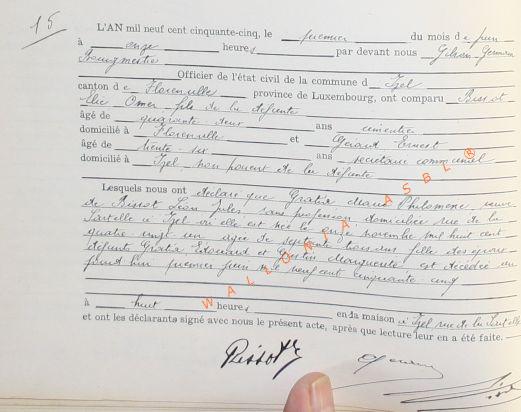 15
L'AN mil neuf cent cinquante-cinq, le premier du mois de juin
à onze heures par devant nous Gilson Germain
Officier de l'état civil de la commune d Izel
canton de Florenville province de Luxembourg, ont comparu Bissot
Elie Omer fils de la défunte
âgé de quarante-deux ans cimentier
domicilié à Florenville et Gérard Ernest
âgé de trente-six ans secrétaire communal
domicilié à Izel, non parent de la défunte
Lesquels nous ont déclaré que Gratia Maria Philomène, veuve
de Bissot Léon Jules, sans profession domiciliée rue de la
à Izel où elle est née le onze novembre mil huit cent
quatre vingt un agée de septante trois ans fille des époux
défunts Gratia, Edouard et Marguerite est décédée
premier juin mil neuf cent cinquante cinq
à huit heures en da maison à Izel rue de la
et ont les déclarants signé avec nous le présent acte, après que lecture leur en a été faite.
Bissot
WALLONIA ASBL ®